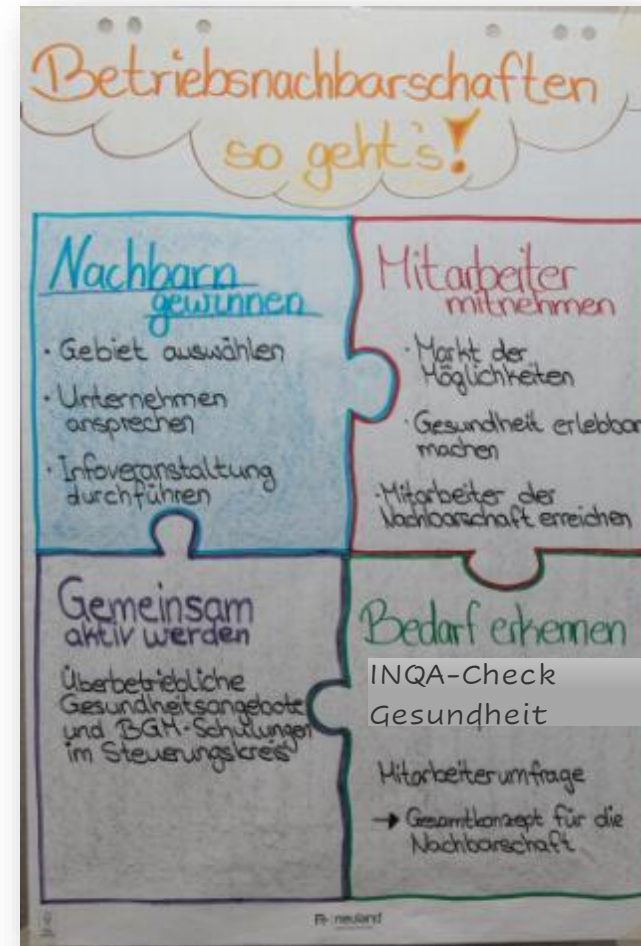 Betriebsnachbarschaften
so geht's!
Nachbarn
gewinnen
· Gebiet auswählen
· Unternehmen
ansprechen
· Infoveranstaltung
durchführen
Mitarbeiter
mitnehmen
· Markt der
Möglichkeiten
· Gesundheit erlebbar
machen
· Mitarbeiter der
Nachbarschaft erreichen
Gemeinsam
aktiv werden
Überbetriebliche
Gesundheitsangebote
und BGM-Schulungen
im Steuerungskreis
Bedarf erkennen
INQA-Check
Gesundheit
Mitarbeiterumfrage
→ Gesamtkonzept für die
Nachbarschaft
neuland